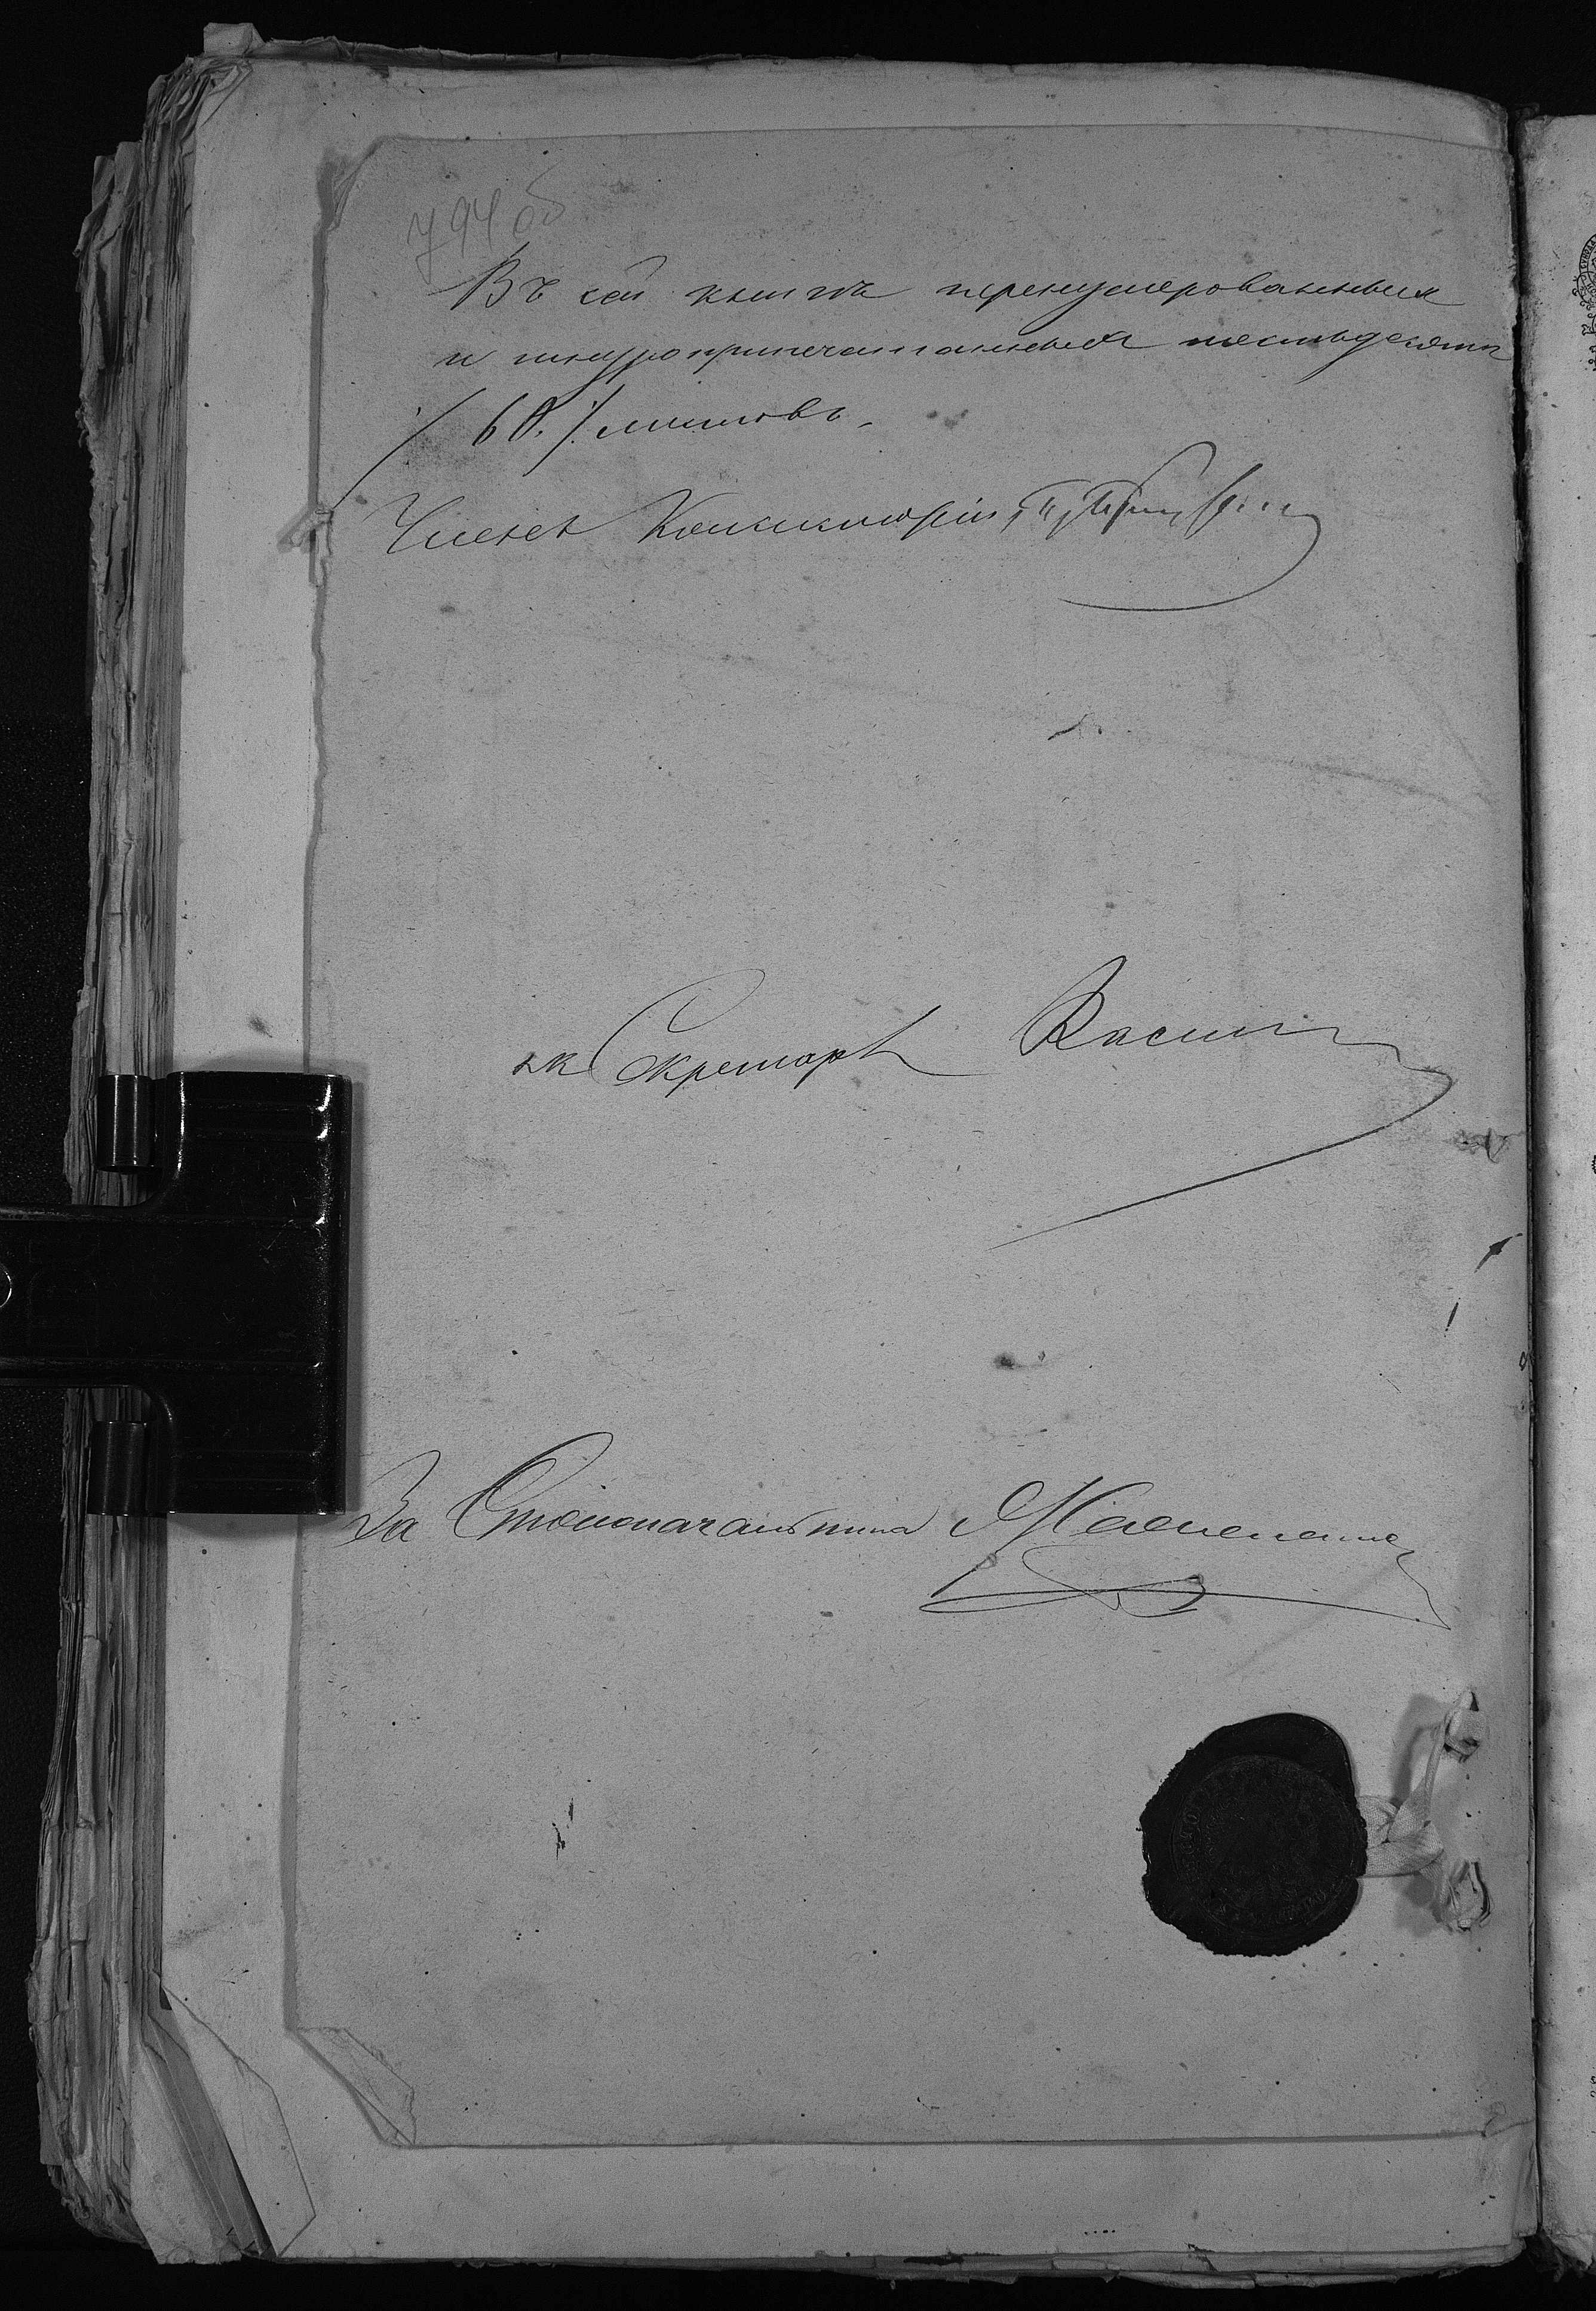 794 об
Въ сей книгѣ перенумерованныхъ
и шнуроприпечатанныхъ шестьдесятъ
/ 60. / листовъ.
Членъ Консисторіи,
Секретарь
За Столоначальника